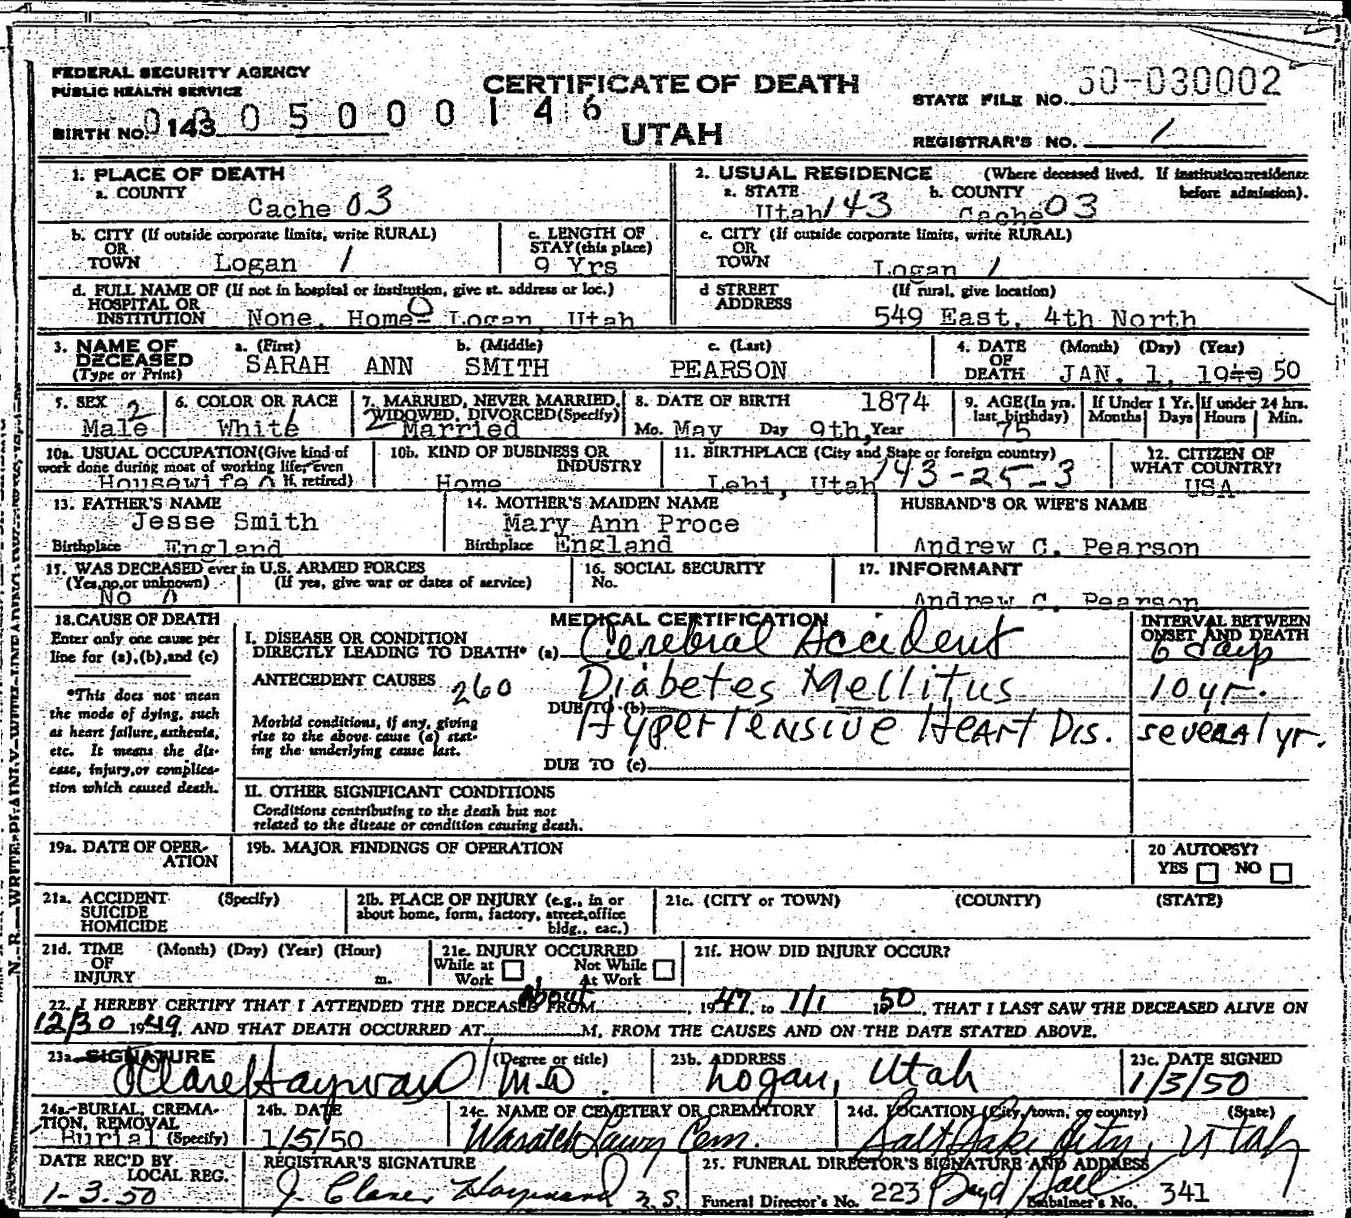 FEDERAL SECURITY AGENCY
PUBLIC HEALTH SERVICE
CERTIFICATE OF DEATH
STATE FILE NO. 50-030002
BIRTH NO. 143 0 0 5 0 0 0 1 4 6
UTAH
REGISTRAR'S NO. 1
1. PLACE OF DEATH
a. COUNTY
Cache 03
2. USUAL RESIDENCE (Where deceased lived. If institution:residence before admission).
a. STATE Utah 143 b. COUNTY Cache 03
b. CITY (If outside corporate limits, write RURAL)
OR
TOWN Logan 1
c. LENGTH OF
STAY (this place)
9 Yrs
c. CITY (If outside corporate limits, write RURAL)
OR
TOWN Logan 1
d. FULL NAME OF (If not in hospital or institution, give st. address or loc.)
HOSPITAL OR
INSTITUTION None, Home- Logan, Utah 0
d STREET (If rural, give location)
ADDRESS
549 East, 4th North
3. NAME OF a. (First) b. (Middle) c. (Last)
DECEASED SARAH ANN SMITH PEARSON
(Type or Print)
4. DATE (Month) (Day) (Year)
OF
DEATH JAN. 1, 1949 50
5. SEX 2
Male
6. COLOR OR RACE
White 1
7. MARRIED, NEVER MARRIED,
WIDOWED, DIVORCED (Specify)
2 Married
8. DATE OF BIRTH 1874
Mo. May Day 9th, Year
9. AGE (In yrs. last birthday)
75
If Under 1 Yr. Months Days
If under 24 hrs. Hours Min.
10a. USUAL OCCUPATION (Give kind of
work done during most of working life, even
if retired) Housewife 0
10b. KIND OF BUSINESS OR
INDUSTRY
Home
11. BIRTHPLACE (City and State or foreign country)
Lehi, Utah 143-25-3
12. CITIZEN OF
WHAT COUNTRY?
USA
13. FATHER'S NAME
Jesse Smith
Birthplace England
14. MOTHER'S MAIDEN NAME
Mary Ann Proce
Birthplace England
HUSBAND'S OR WIFE'S NAME
Andrew C. Pearson
15. WAS DECEASED ever in U.S. ARMED FORCES
(Yes, no, or unknown) (If yes, give war or dates of service)
No 0
16. SOCIAL SECURITY
No.
17. INFORMANT
Andrew C. Pearson
18. CAUSE OF DEATH
Enter only one cause per
line for (a), (b), and (c)
*This does not mean
the mode of dying, such
as heart failure, asthenia,
etc. It means the dis-
ease, injury, or complica-
tion which caused death.
MEDICAL CERTIFICATION
INTERVAL BETWEEN
ONSET AND DEATH
I. DISEASE OR CONDITION
DIRECTLY LEADING TO DEATH* (a) Cerebral Accident 6 days
ANTECEDENT CAUSES 260
DUE TO (b) Diabetes Mellitus 10 yr.
Morbid conditions, if any, giving
rise to the above cause (a) stat-
ing the underlying cause last.
Hypertensive Heart Dis. several yr.
DUE TO (c)
II. OTHER SIGNIFICANT CONDITIONS
Conditions contributing to the death but not
related to the disease or condition causing death.
19a. DATE OF OPER-
ATION
19b. MAJOR FINDINGS OF OPERATION
20 AUTOPSY?
YES NO
21a. ACCIDENT (Specify)
SUICIDE
HOMICIDE
21b. PLACE OF INJURY (e.g., in or
about home, form, factory, street, office
bldg., eac.)
21c. (CITY or TOWN) (COUNTY) (STATE)
21d. TIME (Month) (Day) (Year) (Hour)
OF
INJURY m.
21e. INJURY OCCURRED
While at Work Not While At Work
21f. HOW DID INJURY OCCUR?
22. I HEREBY CERTIFY THAT I ATTENDED THE DECEASED FROM about, 1947, to 1/1 1950, THAT I LAST SAW THE DECEASED ALIVE ON
12/30 1949, AND THAT DEATH OCCURRED AT M, FROM THE CAUSES AND ON THE DATE STATED ABOVE.
23a. SIGNATURE (Degree or title)
J Clare Hayward M.D.
23b. ADDRESS
Logan, Utah
23c. DATE SIGNED
1/3/50
24a. BURIAL, CREMA-
TION, REMOVAL
Burial (Specify)
24b. DATE
1/5/50
24c. NAME OF CEMETERY OR CREMATORY
Wasatch Lawn Cem.
24d. LOCATION (City, town, or county) (State)
Salt Lake City, Utah
DATE REC'D BY
LOCAL REG.
1-3-50
REGISTRAR'S SIGNATURE
J. Clare Hayward
25. FUNERAL DIRECTOR'S SIGNATURE AND ADDRESS
Funeral Director's No. 223 Boyd Hall Embalmer's No. 341